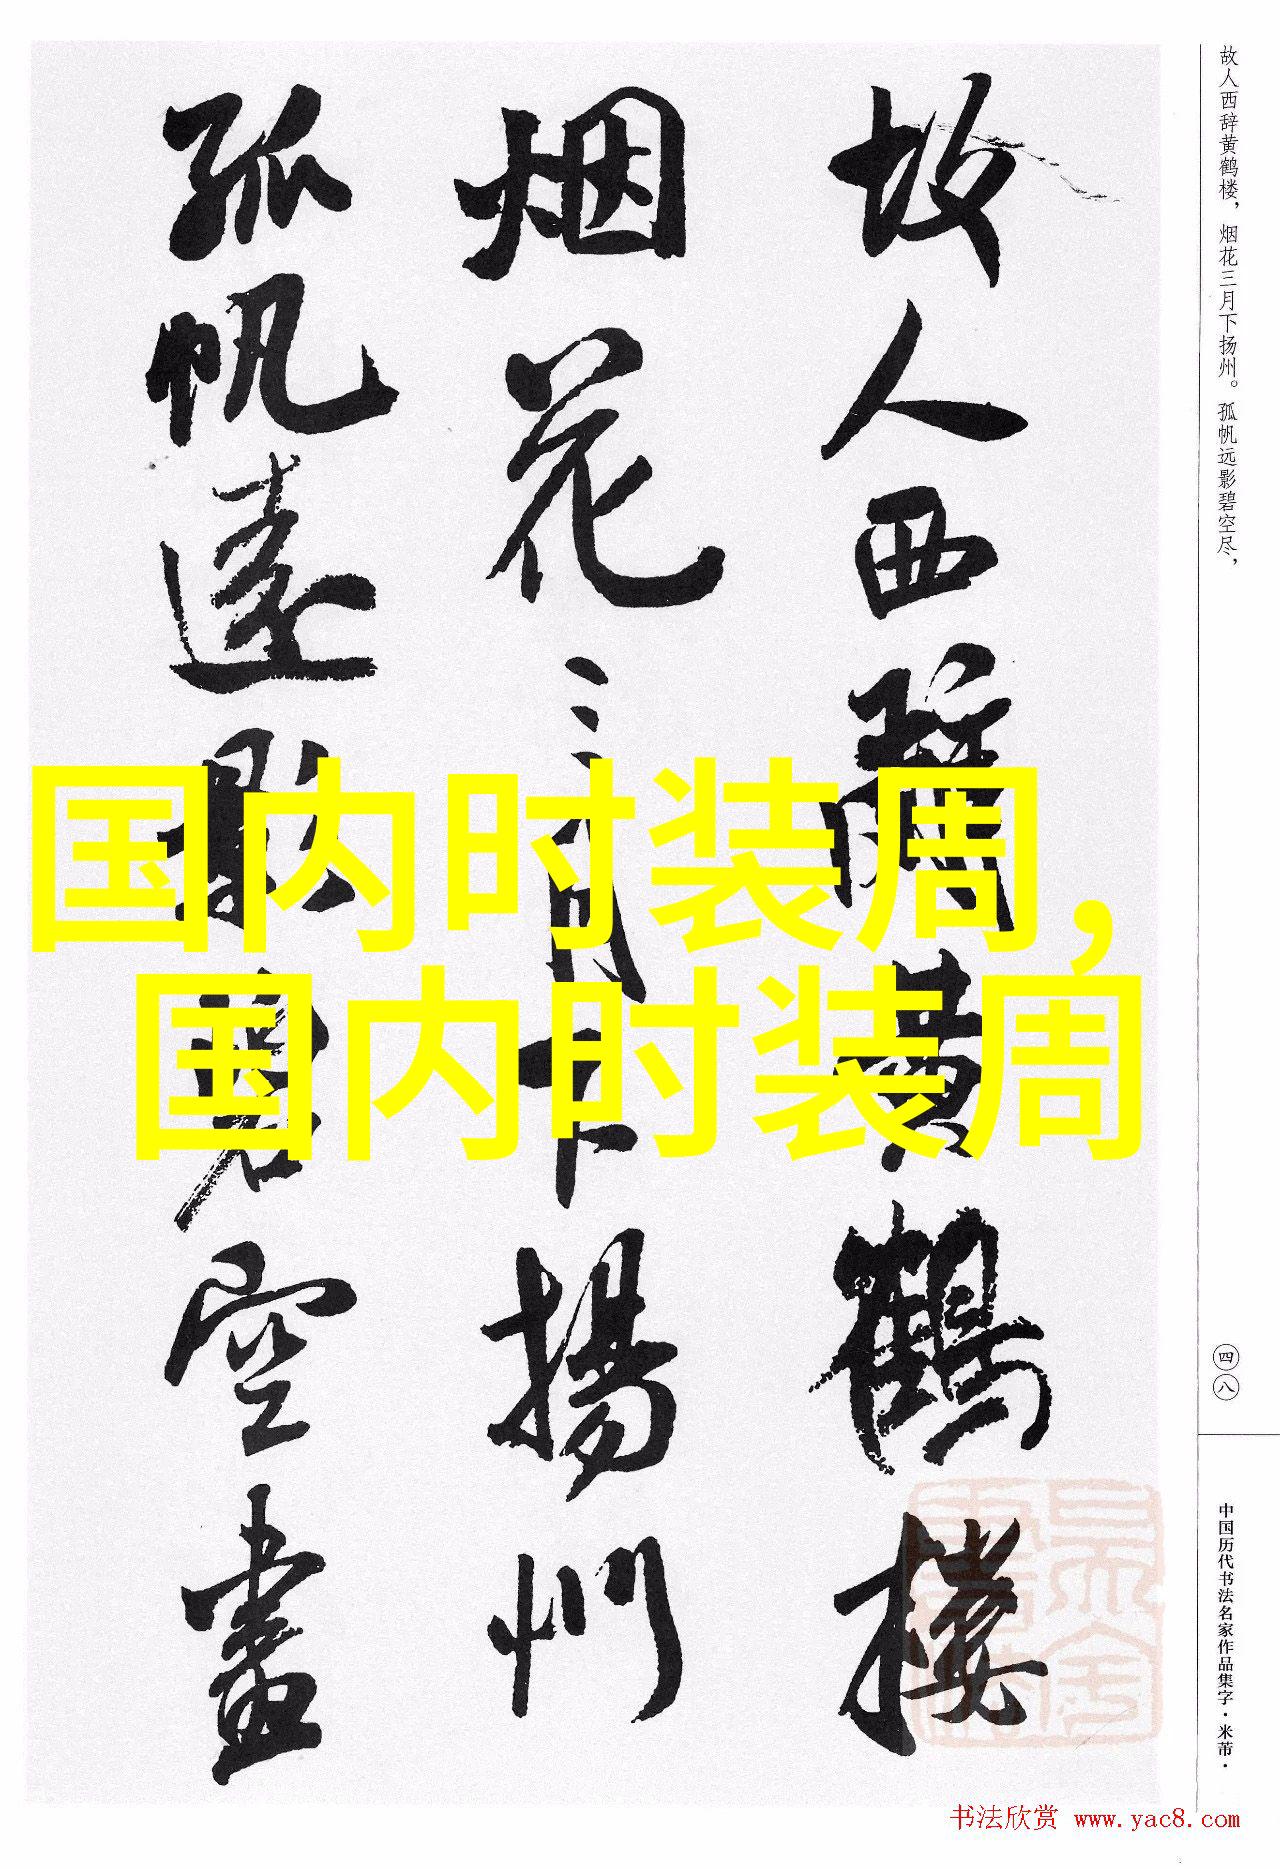 故人西辞黄鹤楼
烟花三月下扬州
孤帆远影碧空尽
国内时装周，
国内时装周
故人西辞黄鹤楼，烟花三月下扬州。孤帆远影碧空尽，
四八
中国历代书法名家作品集字·米芾·
书法欣赏 www.yac8.com